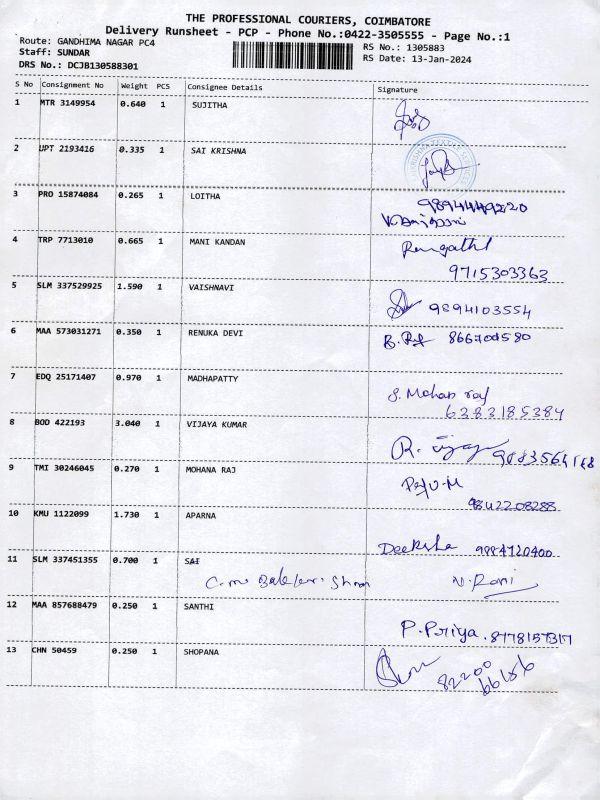 THE PROFESSIONAL COURIERS, COIMBATORE
Delivery Runsheet - PCP - Phone No.:0422-3505555 - Page No.:1
Route: GANDHIMA NAGAR PC4
RS No.: 1305883
Staff: SUNDAR
RS Date: 13-Jan-2024
DRS No.: DCJB130588301
S No Consignment No Weight PCS Consignee Details Signature
1 MTR 3149954 0.640 1 SUJITHA
2 UPT 2193416 0.335 1 SAI KRISHNA
3 PRO 15874084 0.265 1 LOITHA
9894449220
4 TRP 7713010 0.665 1 MANI KANDAN
9715303363
5 SLM 337529925 1.590 1 VAISHNAVI
9894103554
6 MAA 573031271 0.350 1 RENUKA DEVI
7 EDQ 25171407 0.970 1 MADHAPATTY
S. Mohan raj
6383185384
8 BOD 422193 3.040 1 VIJAYA KUMAR
9 TMI 30246045 0.270 1 MOHANA RAJ
9842208288
10 KMU 1122099 1.730 1 APARNA
Deeksha
11 SLM 337451355 0.700 1 SAI
N. Rani
12 MAA 857688479 0.250 1 SANTHI
P. Priya. 8778157317
13 CHN 50459 0.250 1 SHOPANA
82200
66156